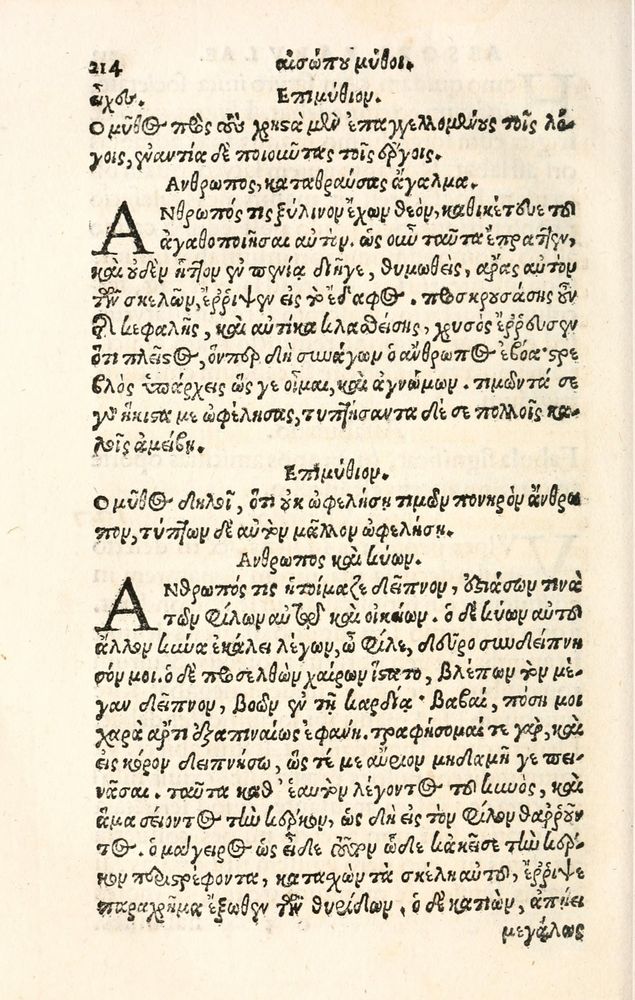 214 αἰσώπου μῦθοι.
ἔχου.
Επιμύθιον.
Ο μῦθος πρὸς τοὺς χρηστὰ μὲν ἐπαγγελλομένους τοῖς λό-
γοις, ἐναντία δὲ ποιοῦντας τοῖς ἔργοις.
Ανθρωπος, καταθραύσας ἄγαλμα.
ΑΝθρωπός τις ξύλινον ἔχων θεὸν, καθικέτευε τοῦ
ἀγαθοποιῆσαι αὐτόν. ὡς οὖν ταῦτα ἔπραττεν,
καὶ οὐδὲν ἧττον ἐν πενίᾳ διῆγε, θυμωθεὶς, ἄρας αὐτὸν
τῶν σκελῶν, ἔρριψεν εἰς τὸ ἔδαφος. προσκρουσάσης οὖν
τῆς κεφαλῆς, καὶ αὐτίκα κλασθείσης, χρυσὸς ἔρρευσεν
ὅτι πλεῖστος, ὅνπερ δὴ συνάγων ὁ ἄνθρωπος ἐβόα· στρε
βλὸς ὑπάρχεις ὥς γε οἶμαι, καὶ ἀγνώμων. τιμῶντά σε
γὰρ ἥκιστα με ὠφέλησας, τυπτήσαντα δέ σε πολλοῖς κα-
λοῖς ἀμείβῃ.
Επιμύθιον.
Ο μῦθος δηλοῖ, ὅτι οὐκ ὠφελήσῃ τιμῶν πονηρὸν ἄνθρω
πον, τύπτων δὲ αὐτὸν μᾶλλον ὠφελήσῃ.
Ανθρωπος καὶ κύων.
ΑΝθρωπός τις ἡτοίμαζε δεῖπνον, ἑστιάσων τινὰ
τῶν φίλων αὐτοῦ καὶ οἰκείων. ὁ δὲ κύων αὐτοῦ
ἄλλον κύνα ἐκάλει λέγων, ὦ φίλε, δεῦρο συνδείπνη
σόν μοι. ὁ δὲ προσελθὼν χαίρων ἵστατο, βλέπων τὸν μέ-
γαν δεῖπνον, βοῶν ἐν τῇ καρδίᾳ· βαβαὶ, πόση μοι
χαρὰ ἄρτι ἐξαπιναίως ἐφάνη. τραφήσομαί τε γὰρ, καὶ
εἰς κόρον δειπνήσω, ὥς τέ με αὔριον μηδαμῆ γε πει-
νᾶσαι. ταῦτα καθ' ἑαυτὸν λέγοντος τοῦ κυνὸς, καὶ
ἅμα σείοντος τὴν κέρκον, ὡς δὴ εἰς τὸν φίλον θαρροῦν
τος. ὁ μάγειρος ὡς εἶδε τοῦτον ὧδε κἀκεῖσε τὴν κέρ-
κον περιστρέφοντα, κατασχὼν τὰ σκέλη αὐτοῦ, ἔρριψε
παραχρῆμα ἔξωθεν τῶν θυρίδων. ὁ δὲ κατιὼν, ἀπῄει
μεγάλως